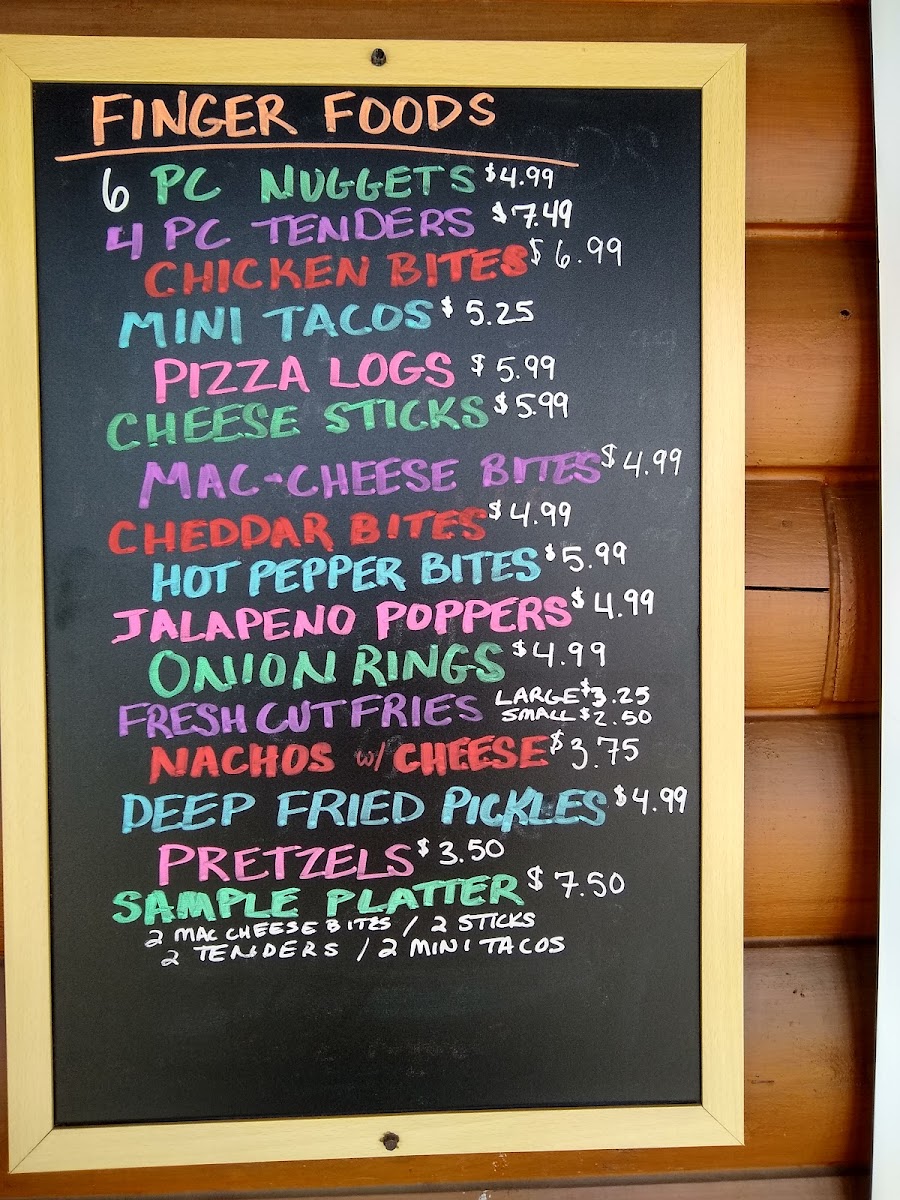 FINGER FOODS
6 PC NUGGETS $4.99
4 PC TENDERS $7.49
CHICKEN BITES $6.99
MINI TACOS $5.25
PIZZA LOGS $5.99
CHEESE STICKS $5.99
MAC-CHEESE BITES $4.99
CHEDDAR BITES $4.99
HOT PEPPER BITES $5.99
JALAPENO POPPERS $4.99
ONION RINGS $4.99
FRESH CUT FRIES LARGE $3.25
SMALL $2.50
NACHOS w/ CHEESE $3.75
DEEP FRIED PICKLES $4.99
PRETZELS $3.50
SAMPLE PLATTER $7.50
2 MAC CHEESE BITES / 2 STICKS
2 TENDERS / 2 MINI TACOS